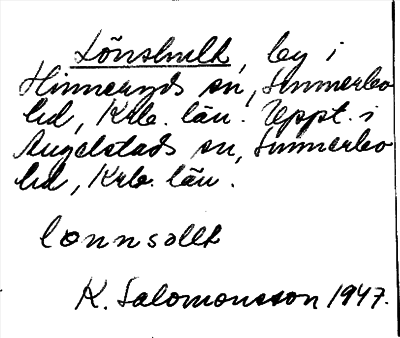 Lönshult, by i
Hinneryds sn, Sunnerbo
hd, Krb. län. Uppt. i
Angelstads sn, Sunnerbo
hd, Krb. län.
lonnsallt
K. Salomonsson 1947.